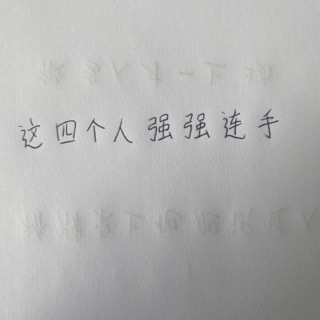 这四个人强强连手